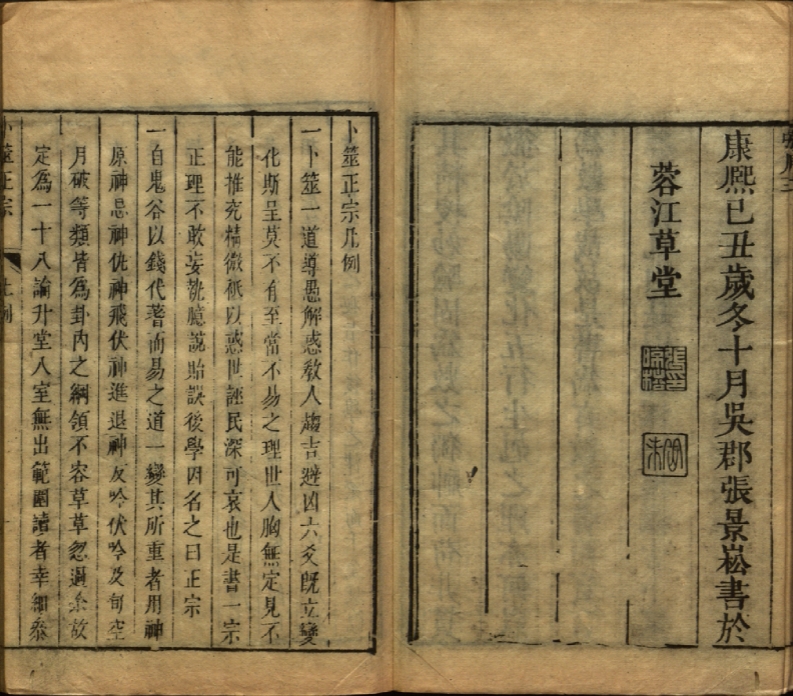 康熙己丑歲冬十月吳郡張景崧書於
蓉江草堂
卜筮正宗凡例
一卜筮一道導愚解惑敎人趨吉避凶六爻旣立變
化斯呈莫不有至當不易之理世人胸無定見不
能推究精微秪以惑世誣民深可哀也是書一宗
正理不敢妄執臆說貽誤後學因名之曰正宗
一自鬼谷以錢代蓍而易之道一變其所重者用神
原神忌神仇神飛伏神進退神反吟伏吟及旬空
月破等類皆爲卦內之綱領不容草草忽過余故
定爲一十八論升堂入室無出範圍讀者幸細叅
卜筮正宗 凡例